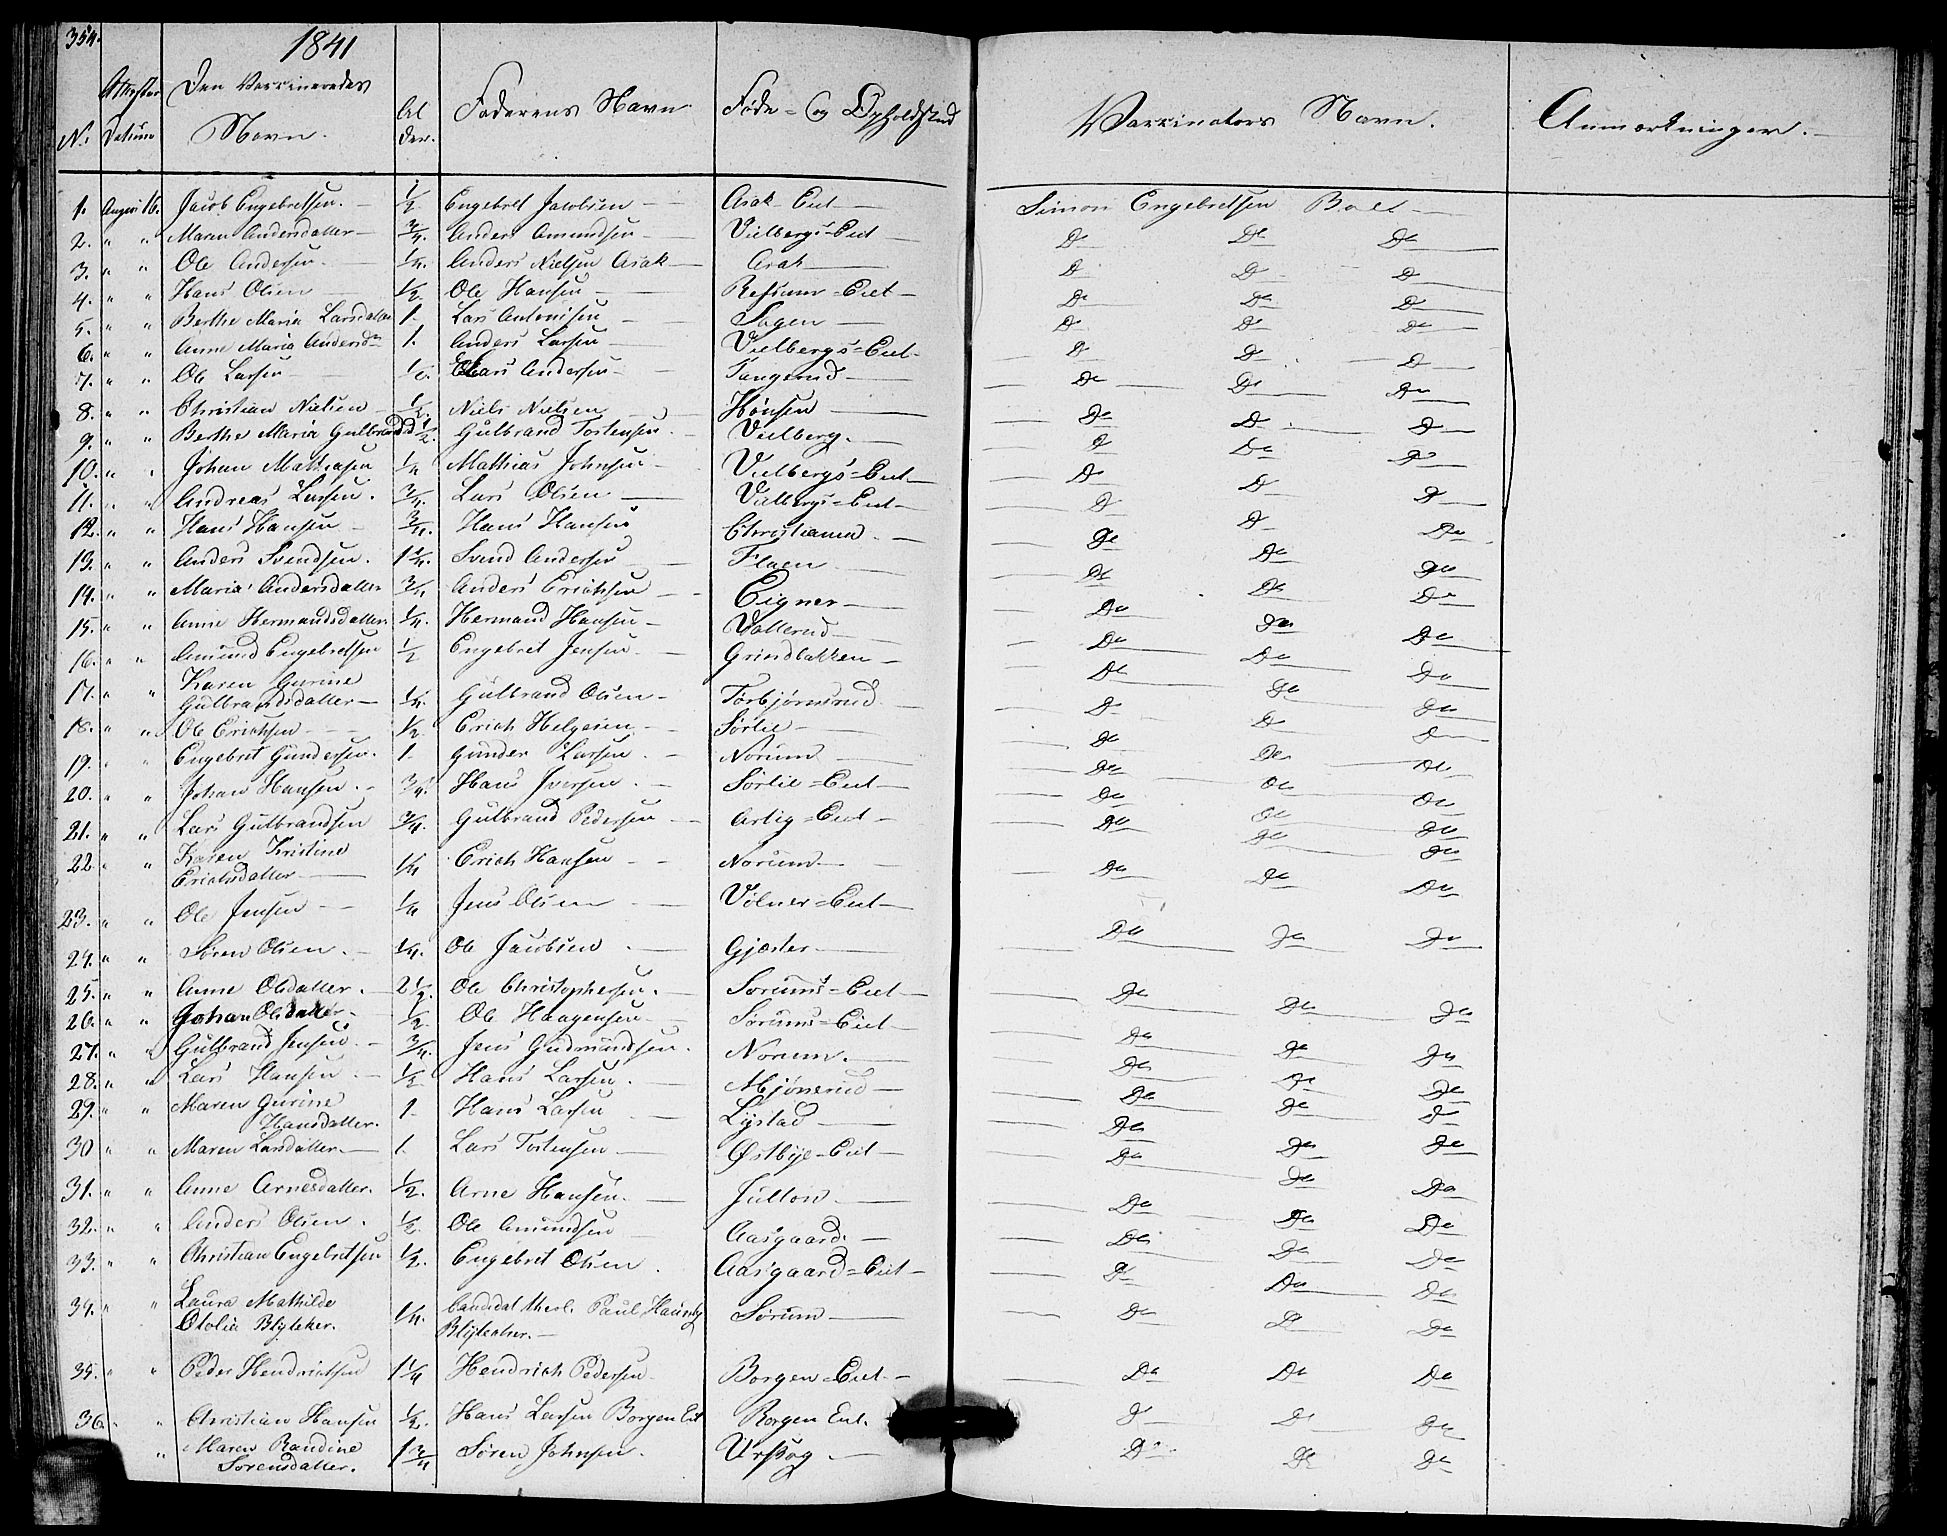 354.
1841
No. Attester Datum Den Vaccineredes Navn. Alder. Faderens Navn Føde- og Opholdsted Vaccinators Navn. Anmærkninger.
1. August 16. Jacob Engebretsen. 1/2 Engebret Jacobsen Asak Eiet Simon Engebretsen Boll
2. " " Maren Andersdatter 3/4. Anders Amundsen Vielbergs=Eiet Do Do Do
3. " " Ole Andersen. 1/4. Anders Nielsen Asak Asak Do Do Do
4. " " Hans Olsen 1/2 Ole Hansen Refsum=Eiet Do Do Do
5. " " Berthe Maria Larsdatter 1. Lars Antonisen Sagen Do Do Do
6. " " Anne Maria Andersdr 1. Anders Larsen Vielbergs=Eiet Do Do Do
7. " " Ole Larsen Lars Andersen Tangerud Do Do Do
8. " " Christian Nielsen 1/2. Niels Nielsen Hønsen Do Do Do
9. " " Berthe Maria Gulbrandsd 1/2. Gulbrand Tostensen. Vielberg. Do Do Do
10. " " Johan Mathiasen 1/4 Mathias Johnsen Vielbergs=Eiet Do Do Do
11. " " Andreas Larsen. 3/4. Lars Olsen Vielbergs=Eiet Do Do Do
12. " " Hans Hansen 3/4. Hans Hansen Christiania. Do Do Do
13. " " Anders Svendsen. 1 1/4. Svend Andersen Flaen Do Do Do
14. " " Maria Andersdatter 3/4 Anders Erichsen Eigner Do Do Do
15. " " Anne Hermandsdatter. 1/4. Hermand Hansen Vallerud Do Do Do
16. " " Amund Engebretsen 1/2 Engebret Jensen. Grindbakken Do Do Do
17. " " Karen Gurine
Gulbrandsdatter 1/4. Gulbrand Olsen Torbjørnsrud Do Do Do
18. " " Ole Erichsen 1/2 Erich Helgesen Sørlie Do Do Do
19. " " Engebret Gundersen. 1. Gunder Larsen. Norum Do Do Do
20. " " Johan Hansen. 3/4. Hans Iversen. Sørlie=Eiet Do Do Do
21. " " Lars Gulbrandsen 3/4. Gulbrand Pedersen Artig=Eiet Do Do Do
22. " " Karen Kristine
Erichsdatter 1/4 Erich Hansen Norum Do Do Do
23. " " Ole Jensen 1/4 Jens Olsen Vølner=Eiet Do Do Do
24. " " Søren Olsen. 1/4. Ole Jacobsen. Gjester Do Do Do
25. " " Anne Olsdatter. 2 1/2. Ole Christophersen. Sørums=Eiet Do Do Do
26. " " Johan Olsdatter 1/2 Ole Haagensen Sørums=Eiet Do Do Do
27. " " Gulbrand Jensen. 3/4. Jens Gudmundsen. Norum. Do Do Do
28. " " Lars Hansen. 1/2 Hans Larsen. Mjønerud Do Do Do
29. " " Maren Gurine
Hansdatter. 1. Hans Larsen Lystad Do Do Do
30 " " Maren Larsdatter. 1. Lars Tostensen Østbye=Eiet Do Do Do
31. " " Anne Arnesdatter. 1/2. Arne Hansen. Julton. Do Do Do
32. " " Anders Olsen. 1/2 Ole Amundsen Aasgaard. Do Do Do
33. " " Christian Engebretsen 1/2. Engebret Olsen. Aasgaard=Eiet Do Do Do
34. " " Laura Mathilde
Otolia Blÿteker. 1/4. Candidat theol. Paul
Blÿtecker. Sørum Do Do Do
35. " " Peder Hendrichsen 1 1/4 Hendrich Pedersen Borgen=Eiet. Do Do Do
36. " " Christian Hansen 1/2. Hans Larsen Borgen Eiet Borgen Eiet. Do Do Do
" Maren Randine
Sørensdatter. 1 3/4 Søren Johnsen. Urskog Do Do Do